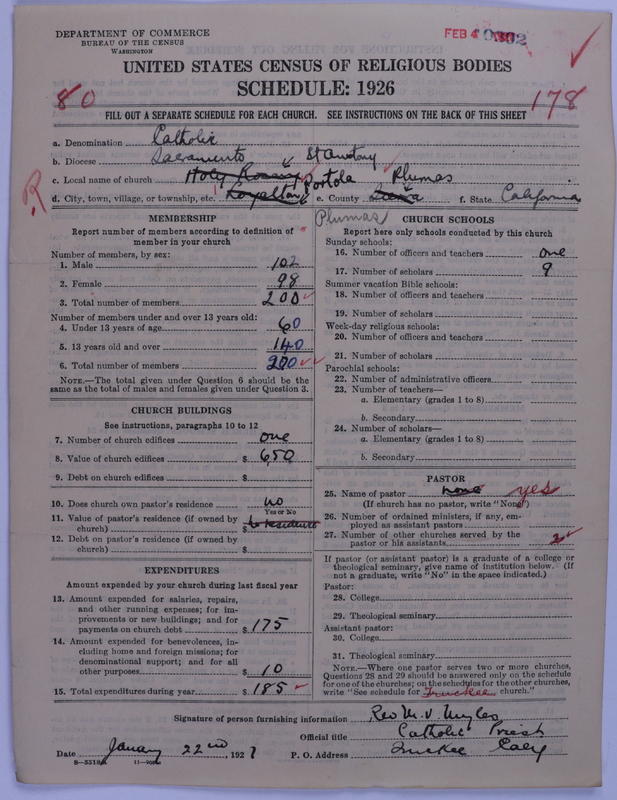 DEPARTMENT OF COMMERCE
BUREAU OF THE CENSUS
WASHINGTON
FEB 4
UNITED STATES CENSUS OF RELIGIOUS BODIES
SCHEDULE: 1926
80
178
FILL OUT A SEPARATE SCHEDULE FOR EACH CHURCH. SEE INSTRUCTIONS ON THE BACK OF THIS SHEET
a. Denomination Catholic
b. Diocese Sacramento
c. Local name of church Holy Rosary Plumas
R
d. City, town, village, or township, etc. Loyalton Portola e. County Sierra f. State California
Plumas
MEMBERSHIP
Report number of members according to definition of
member in your church
Number of members, by sex:
1. Male 102
2. Female 98
3. Total number of members 200
Number of members under and over 13 years old:
4. Under 13 years of age 60
5. 13 years old and over 140
6. Total number of members 200
NOTE.—The total given under Question 6 should be
same as the total of males and females given under Question 3.
CHURCH BUILDINGS
See instructions, paragraphs 10 to 12
7. Number of church edifices one
8. Value of church edifices $ 650
9. Debt on church edifices $
10. Does church own pastor's residence no
Yes or No
11. Value of pastor's residence (if owned by
church) $ no residence
12. Debt on pastor's residence (if owned by
church) $
EXPENDITURES
Amount expended by your church during last fiscal year
13. Amount expended for salaries, repairs,
and other running expenses; for im-
provements or new buildings; and for
payments on church debt $ 175
14. Amount expended for benevolences, in-
cluding home and foreign missions; for
denominational support; and for all
other purposes $ 10
15. Total expenditures during year $ 185
CHURCH SCHOOLS
Report here only schools conducted by this church
Sunday schools:
16. Number of officers and teachers one
17. Number of scholars 9
Summer vacation Bible schools:
18. Number of officers and teachers
19. Number of scholars
Week-day religious schools:
20. Number of officers and teachers
21. Number of scholars
Parochial schools:
22. Number of administrative officers
23. Number of teachers—
a. Elementary (grades 1 to 8)
b. Secondary
24. Number of scholars—
a. Elementary (grades 1 to 8)
b. Secondary
PASTOR
25. Name of pastor none yes
(If church has no pastor, write "None")
26. Number of ordained ministers, if any, em-
ployed as assistant pastors
27. Number of other churches served by the
pastor or his assistants 2
If pastor (or assistant pastor) is a graduate of a college or
theological seminary, give name of institution below. (If
not a graduate, write "No" in the space indicated.)
Pastor:
28. College
29. Theological seminary
Assistant pastor:
30. College
31. Theological seminary
NOTE.—Where one pastor serves two or more churches,
Questions 28 and 29 should be answered only on the schedule
for one of the churches; on the schedules for the other churches,
write "See schedule for Truckee church."
Signature of person furnishing information Rev M. V.
Official title Catholic Priest
Date January 22nd, 1927 P. O. Address Truckee Caly